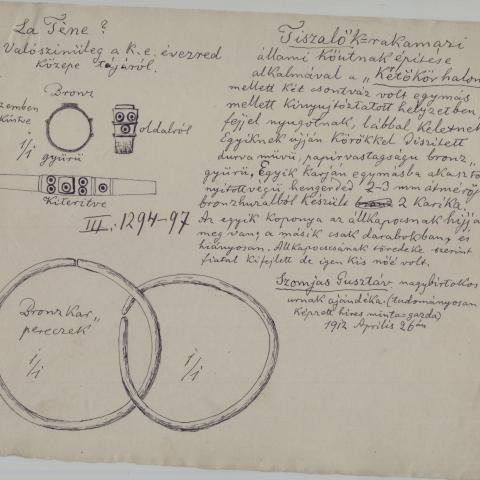 La Tène?
Valószinüleg a k. e. évezred
közepe tájáról.
Bronz
szemben
oldalról
1/1 gyürü
Kiteritve
III. 1294-97
Bronz kar„
pereczek
1/1
1/1
Tiszalök=rakamazi
állami kőutnak épitése
alkalmával a „Kétökör halom
mellett két csontváz volt egymás
mellett kinyujtóztatott helyzetben,
fejjel nyugotnak, lábbal keletnek
Egyiknek ujján körökkel diszitett
durva müvü, papirvastagságu bronz
gyürü, Egyik karján egymásba akasztó
nyitottvégü, hengerded 2-3 mm átmérőj
bronzhuralból készült 2 karika.
Az egyik koponya az állkapocsnak hijja
meg van, a másik csak darabokban, és
hiányosan. Állkapocsának töredéke szerint
fiatal kifejlett de igen kis nőé volt.
Szomjas Gusztáv nagybirtokos
urnak ajándéka. (tudományosan
képzett hires minta=gazda)
1912 Április 26án